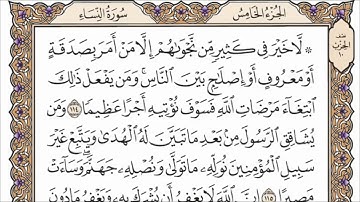 الجزء الخامس
سورة النساء
۞ لَّا خَيْرَ فِي كَثِيرٍ مِّن نَّجْوَىٰهُمْ إِلَّا مَنْ أَمَرَ بِصَدَقَةٍ
أَوْ مَعْرُوفٍ أَوْ إِصْلَٰحٍ بَيْنَ النَّاسِ ۚ وَمَن يَفْعَلْ ذَٰلِكَ
ابْتِغَآءَ مَرْضَاتِ اللَّهِ فَسَوْفَ نُؤْتِيهِ أَجْرًا عَظِيمًا ١١٤ وَمَن
يُشَاقِقِ الرَّسُولَ مِنۢ بَعْدِ مَا تَبَيَّنَ لَهُ الْهُدَىٰ وَيَتَّبِعْ غَيْرَ
سَبِيلِ الْمُؤْمِنِينَ نُوَلِّهِۦ مَا تَوَلَّىٰ وَنُصْلِهِۦ جَهَنَّمَ ۖ وَسَآءَتْ
مَصِيرًا ١١٥ إِنَّ اللَّهَ لَا يَغْفِرُ أَن يُشْرَكَ بِهِۦ وَيَغْفِرُ مَا دُونَ